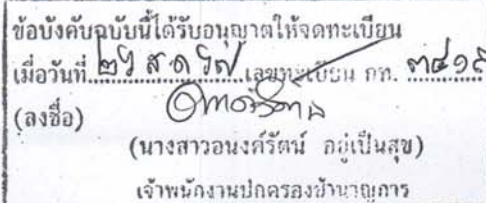 ข้อบังคับฉบับนี้ได้รับอนุญาตให้จดทะเบียน
เมื่อวันที่ ๒๖ ส.ค. ๖๗ เลขทะเบียน กท. ๓๔๑๙
(ลงชื่อ)
(นางสาวอนงค์รัตน์ อยู่เป็นสุข)
เจ้าพนักงานปกครองชำนาญการ